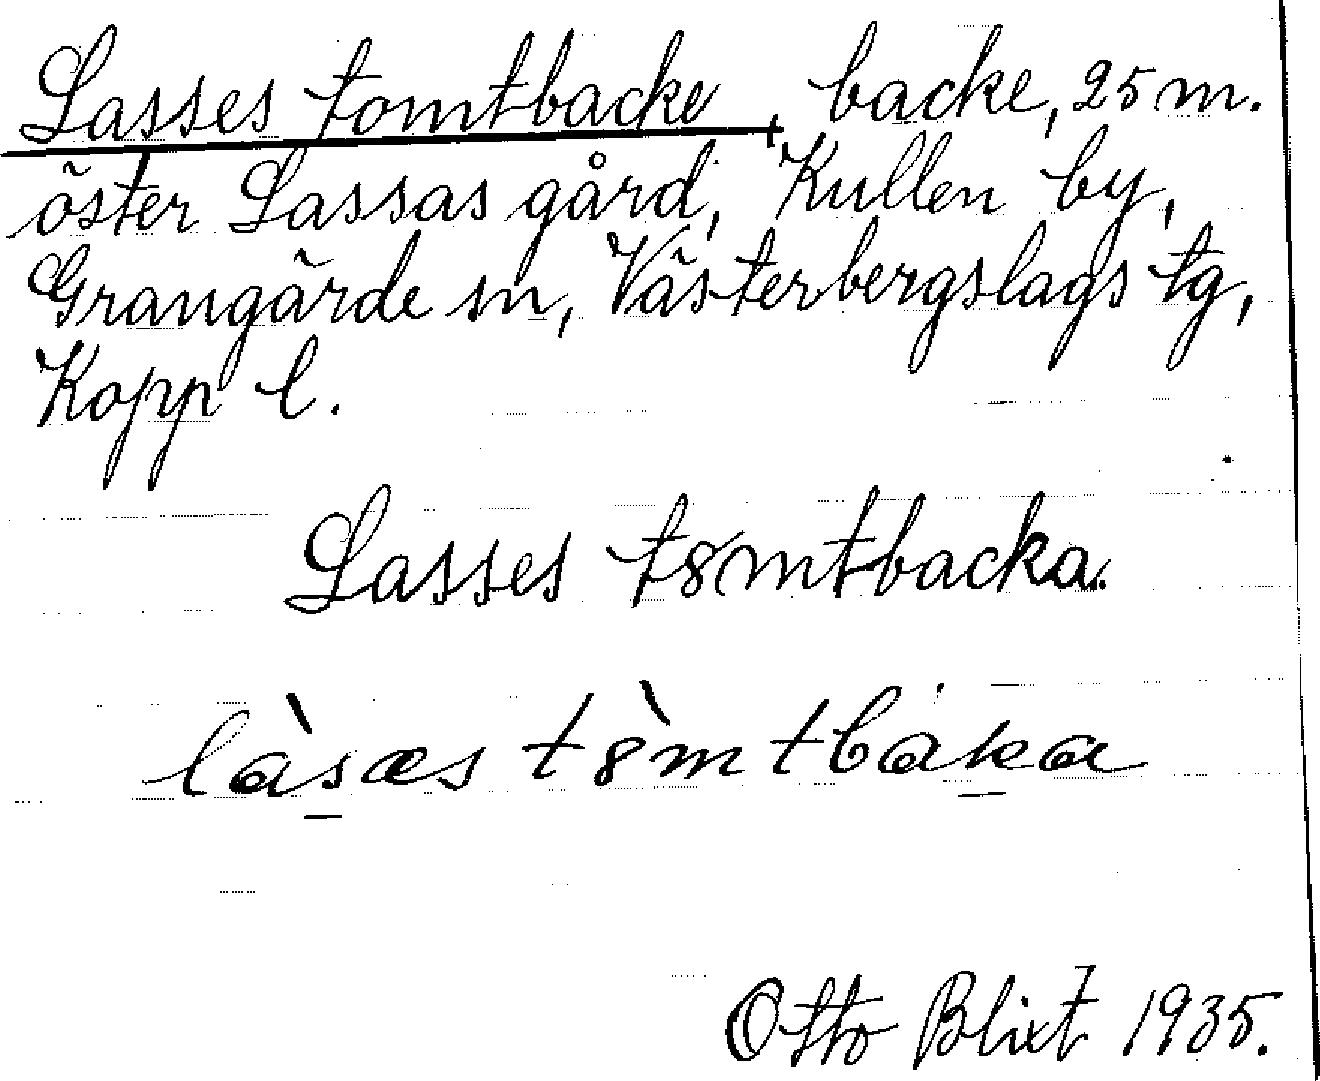 Lasses tomtbacke, backe, 25 m.
öster Lassas gård, Kullen by,
Grangärde sn, Västerbergslags tg,
Kopp l.
Lasses t8mtbacka.
làsæs t8̀mtbaka
Otto Blixt 1935.